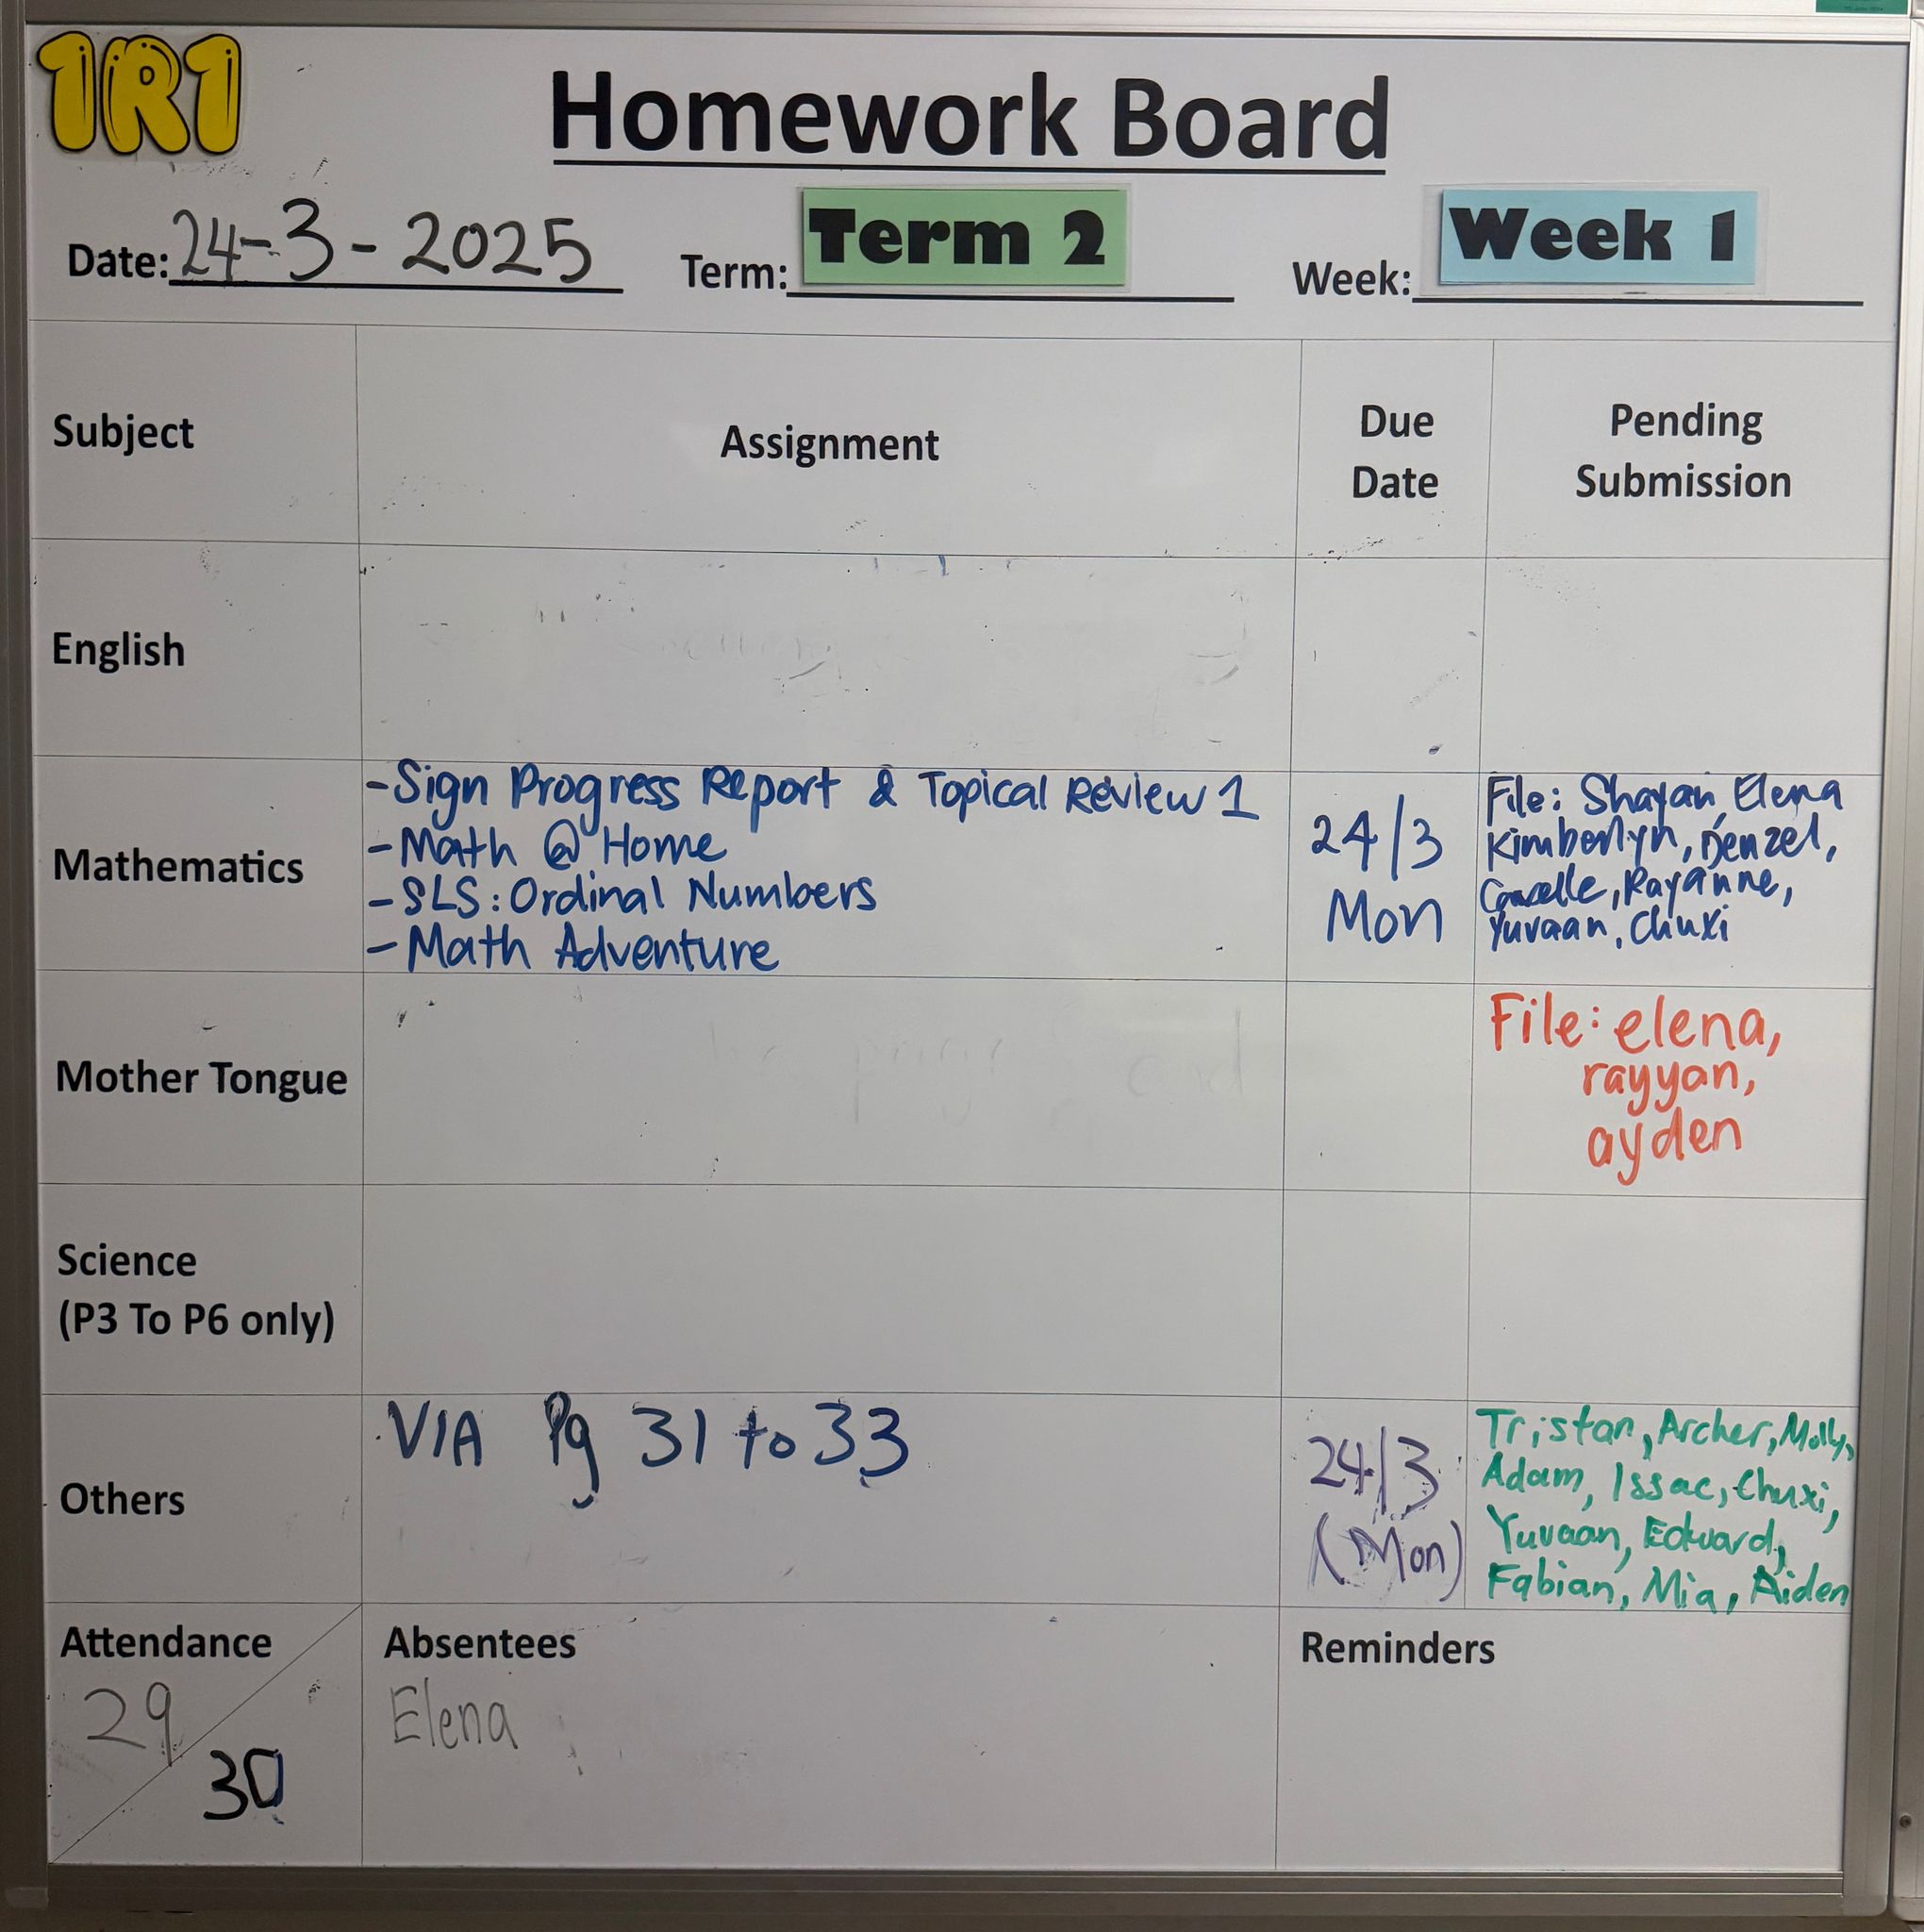 1R1
Homework Board
Date: 24-3-2025 Term: Term 2 Week: Week 1
Subject Assignment Due Date Pending Submission
English
Mathematics
-Sign Progress Report & Topical Review 1
-Math @ Home
-SLS: Ordinal Numbers
-Math Adventure
24/3
Mon
File: Shayan, Elena
Kimberlyn, Denzel,
Rayanne,
Yuvaan, Chuxi
Mother Tongue
File: elena,
rayyan,
ayden
Science
(P3 To P6 only)
Others
VIA Pg 31 to 33
24/3
(Mon)
Tristan, Archer, Molly,
Adam, Issac, Chuxi,
Yuvaan, Edward,
Fabian, Mia, Aiden
Attendance
29
30
Absentees
Elena
Reminders